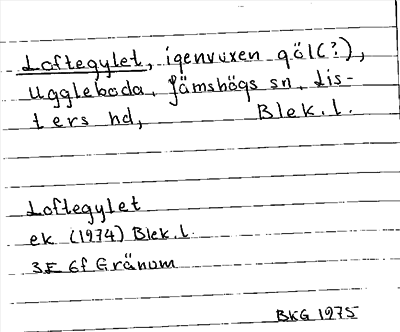 Loftegylet, igenvuxen göl(?),
Uggleboda, Jämshögs sn, Lis-
ters hd, Blek. l.
Loftegylet
ek. (1974) Blek. l.
3E 6f Gränum
BKG 1975